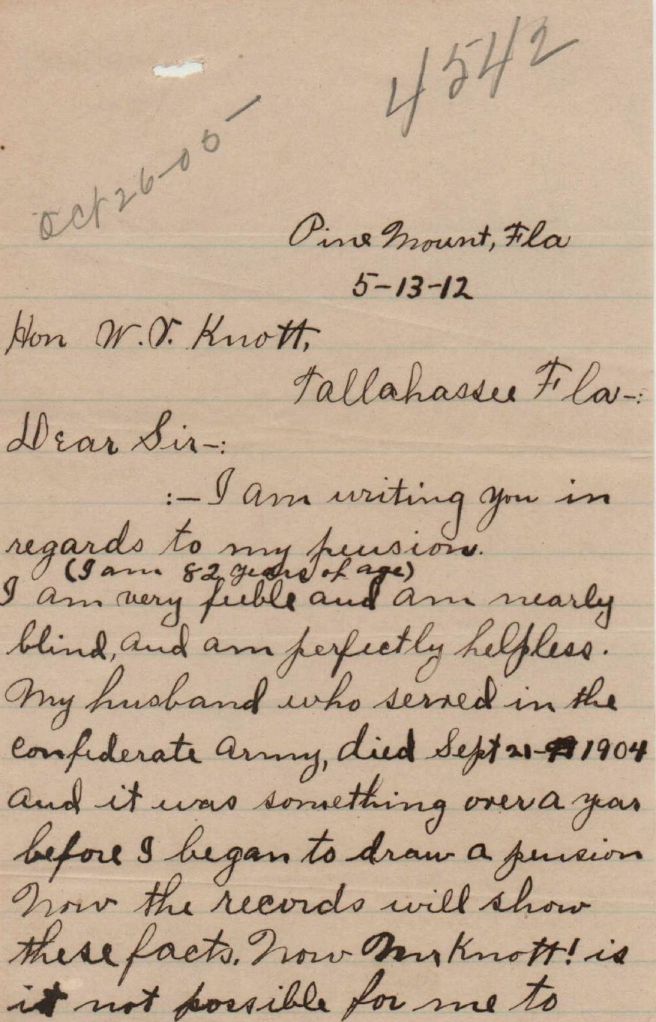 4542
Oct 26-05-
Pine Mount, Fla
5-13-12
Hon W. V. Knott,
Tallahassee Fla-:
Dear Sir-:
:- I am writing you in
regards to my pension.
(I am 82 years of age)
I am very feeble and am nearly
blind, and am perfectly helpless.
My husband who served in the
confederate army, died Sept 21- 1904
and it was something over a year
before I began to draw a pension
Now the records will show
these facts. Now Mr Knott! is
it not possible for me to